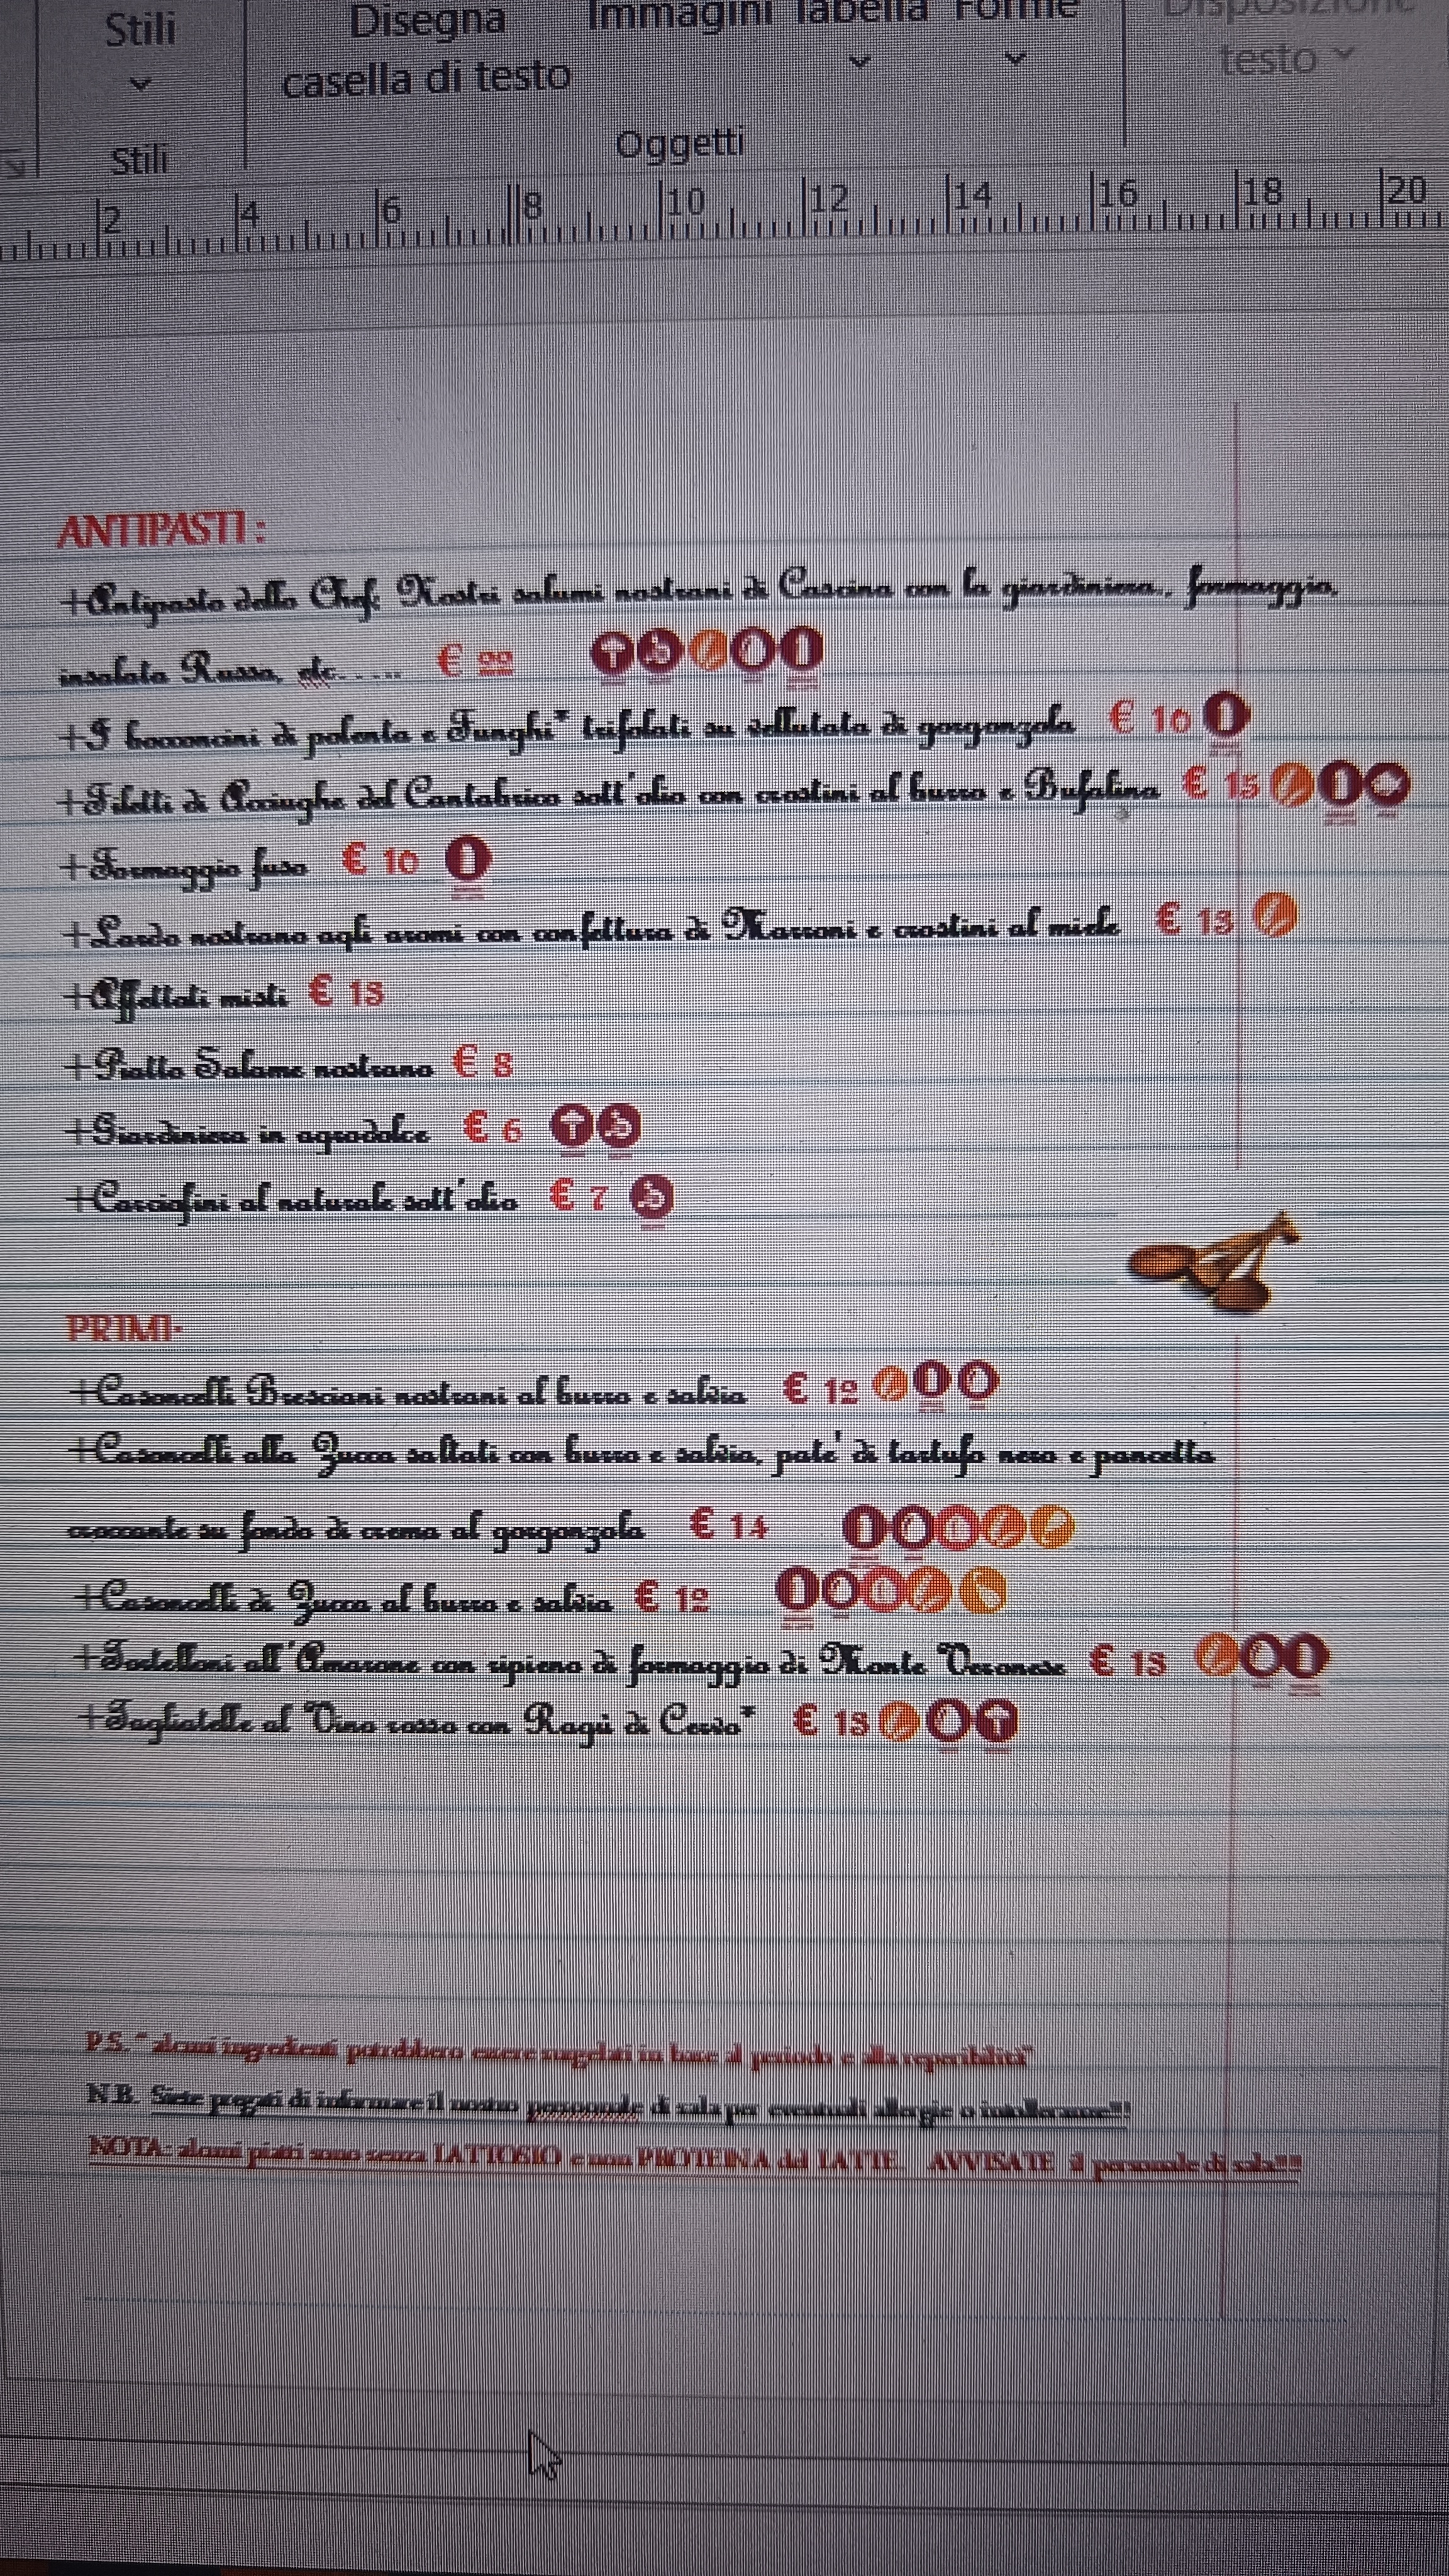 Stili
Disegna
casella di testo
Immagini Tabella Forme
Disposizione
testo
Stili
Oggetti
2 4 6 8 10 12 14 16 18 20
ANTIPASTI :
+Antipasto dello Chef: Nostri salumi nostrani di Cascina con la giardiniera., formaggio,
insalata Russa, etc..... € 22
+I bocconcini di polenta e Funghi* trifolati su vellutata di gorgonzola € 10
+Filetti di Acciughe del Cantabrico sott'olio con crostini al burro e Bufalina € 15
+Formaggio fuso € 10
+Lardo nostrano agli aromi con confettura di Marroni e crostini al miele € 13
+Affettati misti € 13
+Piatto Salame nostrano € 8
+Giardiniera in agrodolce € 6
+Carciofini al naturale sott'olio € 7
PRIMI:
+Casoncelli Bresciani nostrani al burro e salvia € 12
+Casoncelli alla Zucca saltati con burro e salvia, pate' di tartufo nero e pancetta
croccante su fondo di crema al gorgonzola € 14
+Casoncelli di Zucca al burro e salvia € 12
+Tortelloni all'Amarone con ripieno di formaggio di Monte Veronese € 13
+Tagliatelle al Vino rosso con Ragù di Cervo* € 13
P.S. "alcuni ingredienti potrebbero essere surgelati in base al periodo e alla reperibilità"
N.B. Siete pregati di informare il nostro personale di sala per eventuali allergie o intolleranze!!!
NOTA: alcuni piatti sono senza LATTOSIO e non PROTEINA del LATTE. AVVISATE il personale di sala!!!